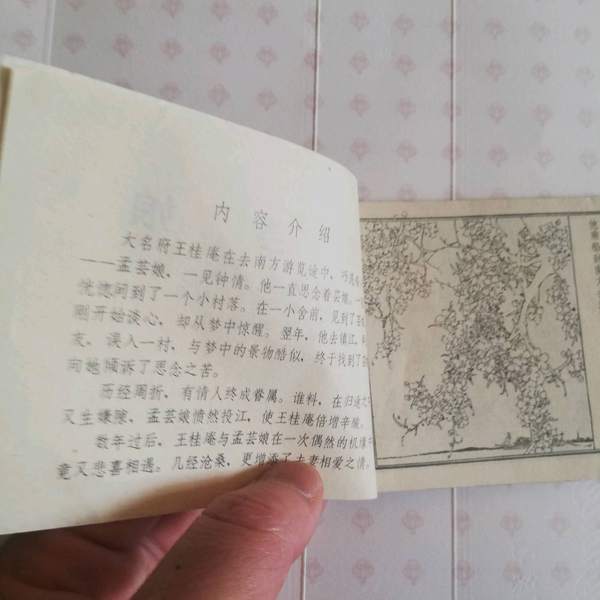 内容介绍
大名府王桂庵在去南方游览途中，巧遇
——孟芸娘，一见钟情。他一直思念着芸娘。一
恍惚间到了一个小村落。在一小舍前，见到了芸
刚开始谈心，却从梦中惊醒。翌年，他去镇江
友，误入一村，与梦中的景物酷似，终于找到了芸
向她倾诉了思念之苦。
历经周折，有情人终成眷属。谁料，在归途
又生嫌隙，孟芸娘愤然投江，使王桂庵倍增辛酸。
数年过后，王桂庵与孟芸娘在一次偶然的机缘
竟又悲喜相遇。几经沧桑，更增添了夫妻相爱之情。